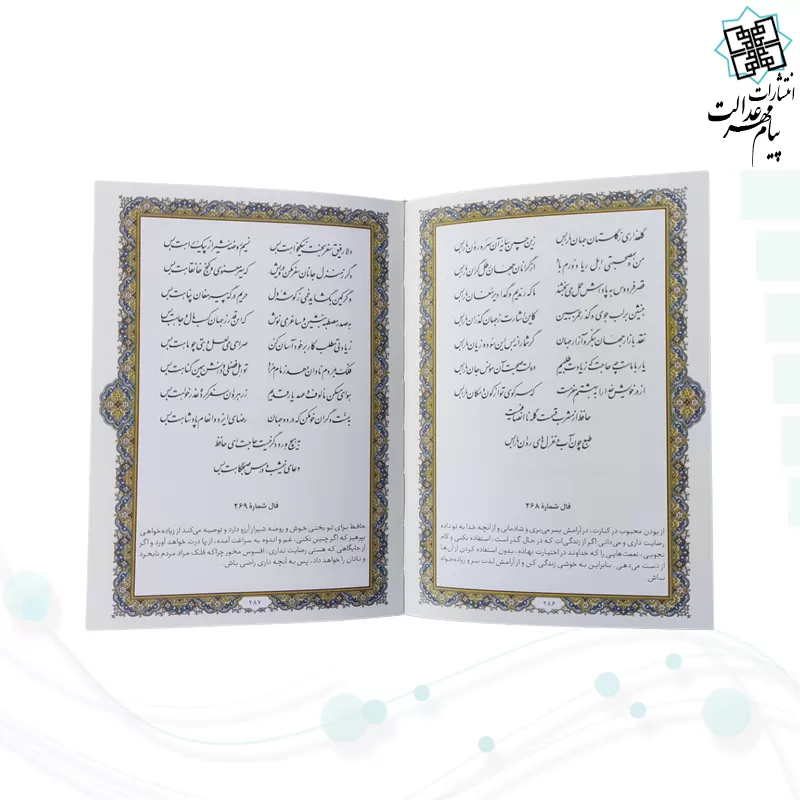 انتشارات
پیام مهر عدالت
گلعذاری ز گلستان جهان ما را بس زین چمن سایه آن سرو روان ما را بس
من و همصحبتی اهل ریا دورم باد از گرانان جهان رطل گران ما را بس
قصر فردوس به پاداش عمل می‌بخشند ما که رندیم و گدا دیر مغان ما را بس
بنشین بر لب جوی و گذر عمر ببین کاین اشارت ز جهان گذران ما را بس
نقد بازار جهان بنگر و آزار جهان گر شما را نه بس این سود و زیان ما را بس
یار با ماست چه حاجت که زیادت طلبیم دولت صحبت آن مونس جان ما را بس
از در خویش خدا را به بهشتم مفرست که سر کوی تو از کون و مکان ما را بس
حافظ از مشرب قسمت گله ناانصافیست
طبع چون آب و غزل‌های روان ما را بس
فال شمارهٔ ۲۶۸
از بودن محبوب در کنارت، در آرامش بسر می‌بری و شادمانی و از آنچه خدا به تو داده
رضایت داری و می‌دانی اگر از زندگی‌ات که در حال گذر است، استفاده نکنی و کام
نجویی، نعمت‌هایی را که خداوند در اختیارت نهاده، بدون استفاده کردن از آن‌ها
از دست می‌دهی. بنابراین به خوشی زندگی کن و از آرامش لذت ببر و زیاده‌خواه
نباش.
۲۸۶
دلا رفیق سفر بخت نیکخواهت بس نسیم روضه شیراز پیک راهت بس
دگر ز منزل جانان سفر مکن درویش که سیر معنوی و کنج خانقاهت بس
وگر کمین بگشاید غمی ز گوشه دل حریم درگه پیر مغان پناهت بس
به صدر مصطبه بنشین و ساغر می نوش که این قدر ز جهان کسب مال و جاهت بس
زیادتی مطلب کار بر خود آسان کن صراحی می لعل و بتی چو ماهت بس
فلک به مردم نادان دهد زمام مراد تو اهل فضلی و دانش همین گناهت بس
هوای مسکن مألوف و عهد یار قدیم ز رهروان سفرکرده عذرخواهت بس
به منت دگران خو مکن که در دو جهان رضای ایزد و انعام پادشاهت بس
به هیچ ورد دگر نیست حاجت ای حافظ
دعای نیم شب و درس صبحگاهت بس
فال شمارهٔ ۲۶۹
حافظ برای تو بختی خوش و روضه شیراز آرزو دارد و توصیه می‌کند از زیاده‌خواهی
بپرهیز که اگر چنین نکنی، غم و اندوه به سراغت آمده، از پا درت خواهد آورد و اگر
از جایگاهی که هستی رضایت نداری، افسوس مخور چراکه فلک مراد مردم نابخرد
و نادان را خواهد داد، پس به آنچه داری راضی باش.
۲۸۷